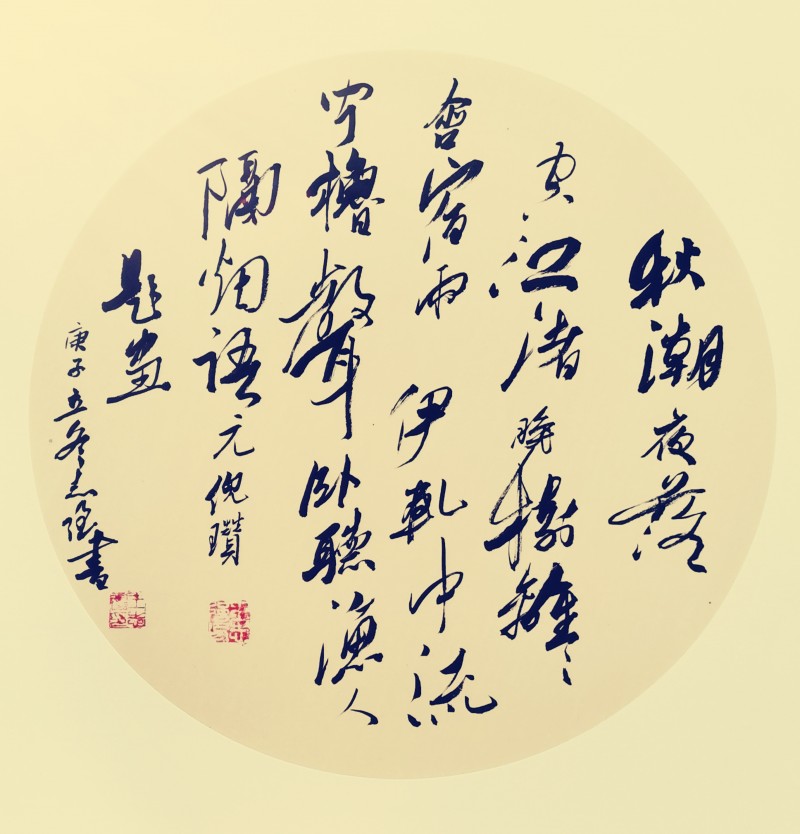 秋潮夜落
空江渚晚樹離々
含宿雨伊軋中流
聞櫓聲卧聽漁人
隔烟語元倪瓚
題畫
庚子立冬志書